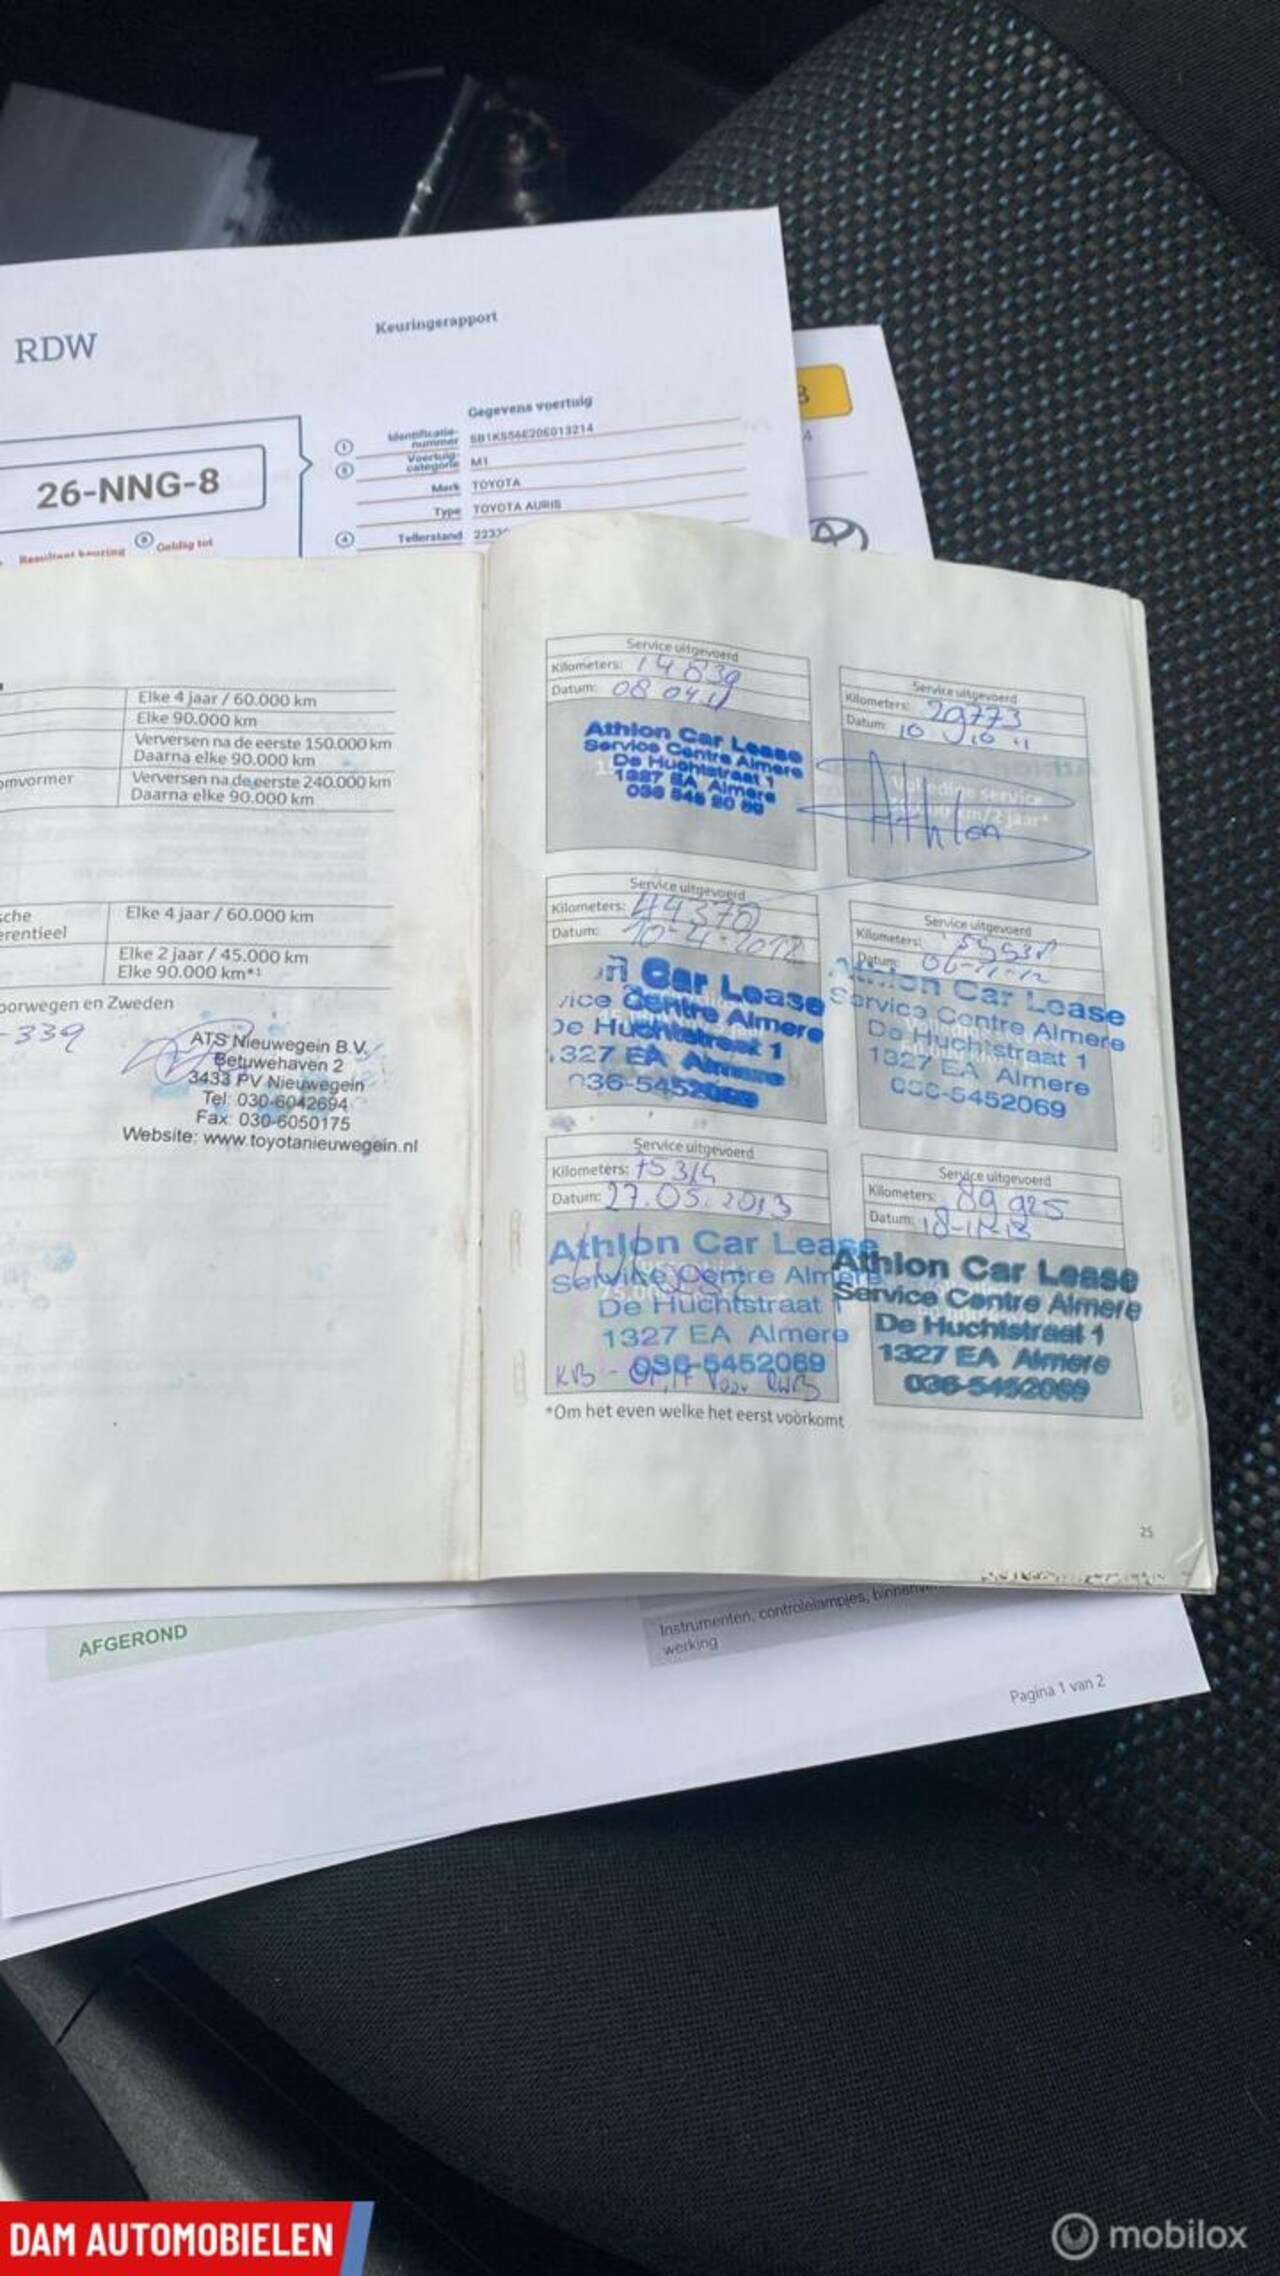 RDW
Keuringsrapport
26-NNG-8
Resultaat keuring
Geldig tot
Gegevens voertuig
Identificatie-
nummer SB1KS56E20E013214
Voertuig-
categorie M1
Merk TOYOTA
Type TOYOTA AURIS
Tellerstand
Elke 4 jaar / 60.000 km
Elke 90.000 km
Verversen na de eerste 150.000 km
Daarna elke 90.000 km
omvormer Verversen na de eerste 240.000 km
Daarna elke 90.000 km
sche
erentieel Elke 4 jaar / 60.000 km
Elke 2 jaar / 45.000 km
Elke 90.000 km*¹
oorwegen en Zweden
-339
ATS Nieuwegein B.V.
Betuwehaven 2
3433 PV Nieuwegein
Tel: 030-6042694
Fax: 030-6050175
Website: www.toyotanieuwegein.nl
Service uitgevoerd
Kilometers: 14839
Datum: 08 04 11
Athlon Car Lease
Service Centre Almere
De Huchtstraat 1
1327 EA Almere
036 545 20 69
Service uitgevoerd
Kilometers: 29773
Datum: 10 10 11
Volledige service
km/2 jaar*
Athlon
Service uitgevoerd
Kilometers: 44370
Datum: 10-4-2012
n Car Lease
vice Centre Almere
De Huchtstraat 1
1327 EA Almere
036-5452069
Service uitgevoerd
Kilometers:
Datum: 06-11-12
Athlon Car Lease
Service Centre Almere
De Huchtstraat 1
1327 EA Almere
036-5452069
Service uitgevoerd
Kilometers: 75314
Datum: 27.05.2013
Athlon Car Lease
Service Centre Almere
De Huchtstraat 1
1327 EA Almere
036-5452069
Service uitgevoerd
Kilometers: 89925
Datum:
Athlon Car Lease
Service Centre Almere
De Huchtstraat 1
1327 EA Almere
036-5452069
*Om het even welke het eerst voorkomt
25
AFGEROND
Instrumenten, controlelampjes, binnenve
werking
Pagina 1 van 2
DAM AUTOMOBIELEN
mobilox